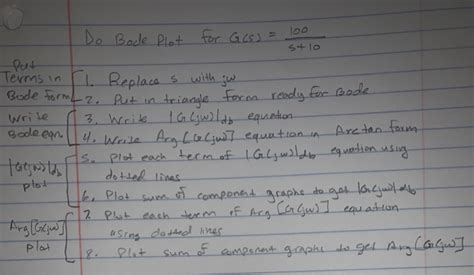 Do Bode Plot for G(s) = 100
s+10
Put
Terms in
Bode form
1. Replace s with jω
2. Put in triangle form ready for Bode
Write
Bode eqn.
3. Write |G(jω)|db equation
4. Write Arg[G(jω)] equation in Arctan form
|G(jω)|db
plot
5. Plot each term of |G(jω)|db equation using
dotted lines
6. Plot sum of component graphs to get |G(jω)|db
Arg[G(jω)]
plot
7. Plot each term of Arg[G(jω)] equation
using dotted lines
8. Plot sum of component graphs to get Arg[G(jω)]